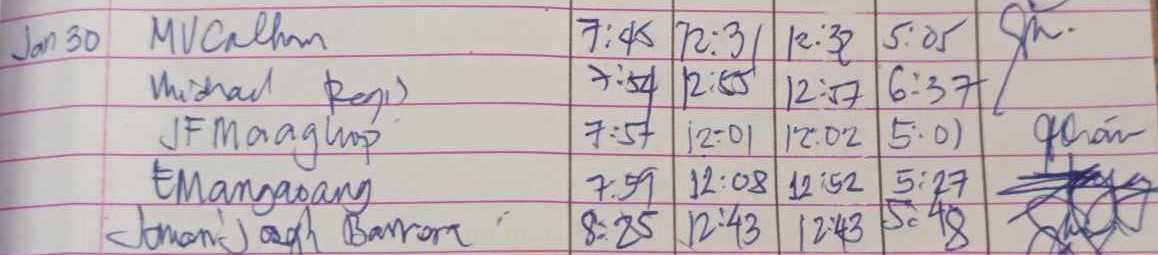 Jan 30 MVCalhm 7:45 12:31 12:32 5:05
Michael Regis 7:54 12:55 12:57 6:37
JFMaaghop 7:57 12:01 12:02 5:01
EMangaoang 7:59 12:08 12:52 5:27
8:25 12:43 12:43 5:48